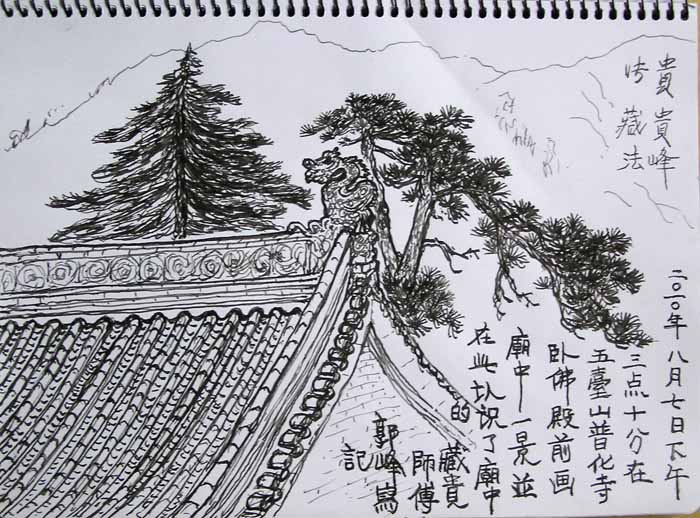 貴貴峰
藏法
二〇一〇年八月七日下午
三点十分在
五臺山普化寺
卧佛殿前画
廟中一景並
在此认识了廟中
的藏貴
師傅
郭峰寫
記